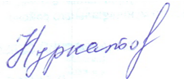 Нуркатов